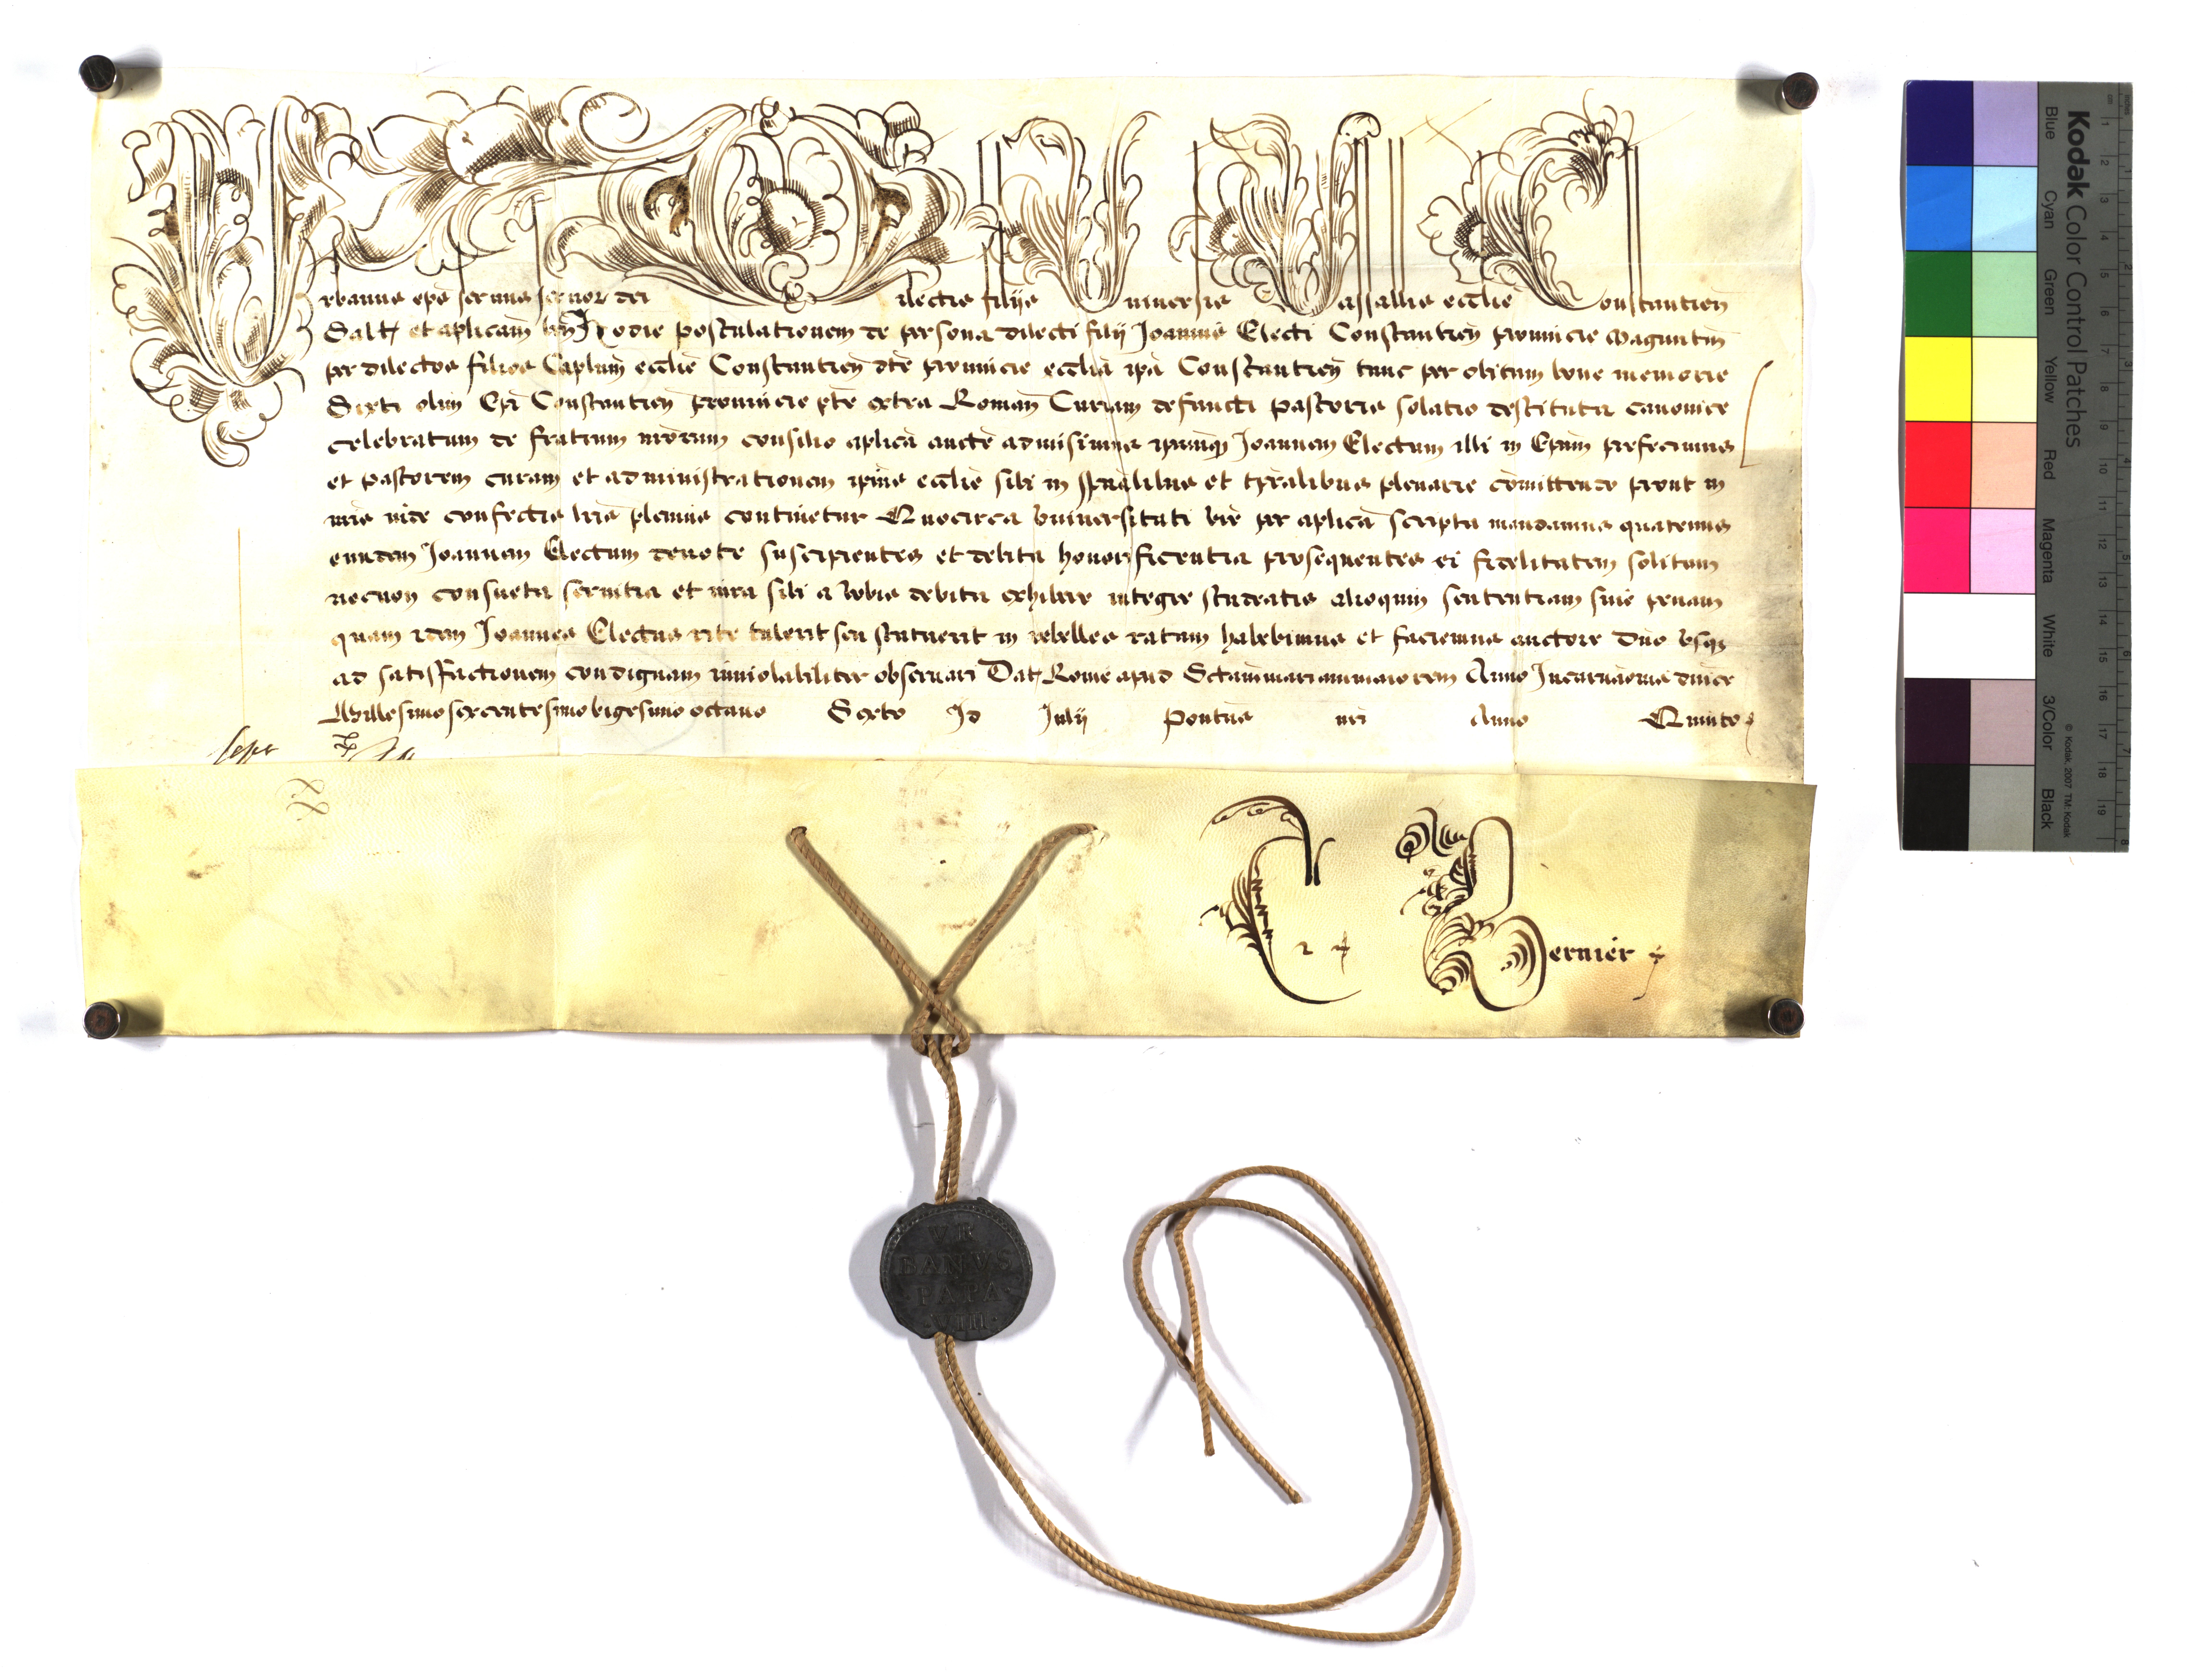 Urbanus epūs servus servoꝝ dei Dilectis filijs Universis Vassallis ecclīe Constantien̄
Saltē et aplicam bn̄ Hodie postulationem de persona dilecti filij Joannis Electi Constantien̄ provincie Maguntin̄
per dilectos filios Caplum ecclīe Constantien̄ dte provincie ecclīa ipa Constantien̄ tunc per obitum bone memorie
Sixti olim Epī Constantien̄ provincie pte extra Roman̄ Curiam defuncti Pastoris solatio destituta canonice
celebratum de fratrum nrorum consilio aplica aucte admisimus ipumq̄ Joannem Electum illi in Epum prefecimus
et Pastorem curam et administrationem ipius ecclīe sibi in spualibus et tpralibus plenarie comittendo prout in
nris inde confectis lris plenius continetur Quocirca Universitati vre per aplica scripta mandamus quatenus
eundem Joannem Electum devote suscipientes et debita honorificentia prosequentes ei fidelitatem solitam
necnon consueta servitia et iura sibi a vobis debita exhibere integre studeatis alioquin sententiam sive penam
quam idem Joannes Electus rite tulerit seu statuerit in rebelles ratam habebimus et faciemus auctore Dno usq̄
ad satisfactionem condignam inviolabiliter observari Dat Rome apud Sctam mariam maiorem Anno Incarnaonis dnice
Millesimo sexcentesimo vigesimo octavo Sexto Id Julij Pontus nri Anno Quinto
Bernier
VR
BANVS
PAPA
VIII
Kodak Color Control Patches
Blue Cyan Green Yellow Red Magenta White 3/Color Black
© Kodak, 2007 TM: Kodak
cm 1 2 3 4 5 6 7 8 9 10 11 12 13 14 15 16 17 18 19
inches 1 2 3 4 5 6 7 8